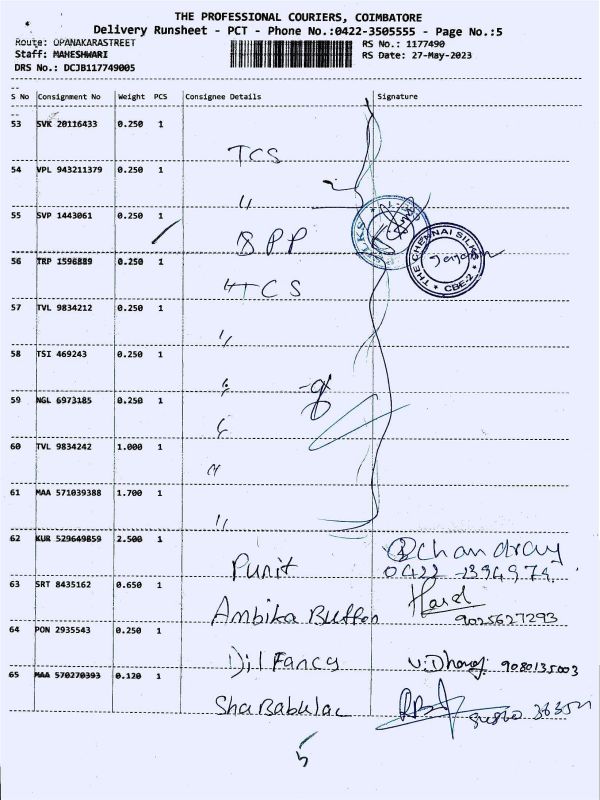 THE PROFESSIONAL COURIERS, COIMBATORE
Delivery Runsheet - PCT - Phone No.:0422-3505555 - Page No.:5
Route: OPANAKARASTREET RS No.: 1177490
Staff: MAHESHWARI RS Date: 27-May-2023
DRS No.: DCJB117749005
S No Consignment No Weight PCS Consignee Details Signature
53 SVK 20116433 0.250 1 TCS
54 VPL 943211379 0.250 1 "
55 SVP 1443061 0.250 1 BPP
56 TRP 1596889 0.250 1 TCS
THE CHENNAI SILKS
CBE-2
57 TVL 9834212 0.250 1 "
58 TSI 469243 0.250 1 "
59 NGL 6973185 0.250 1 "
60 TVL 9834242 1.000 1 "
61 MAA 571039388 1.700 1 "
62 KUR 529649859 2.500 1 Punit
0422
63 SRT 8435162 0.650 1 Ambika Button 9025627293
64 PON 2935543 0.250 1 Dil Fancy 9080135003
65 MAA 570270393 0.120 1 Sha Babulal
5